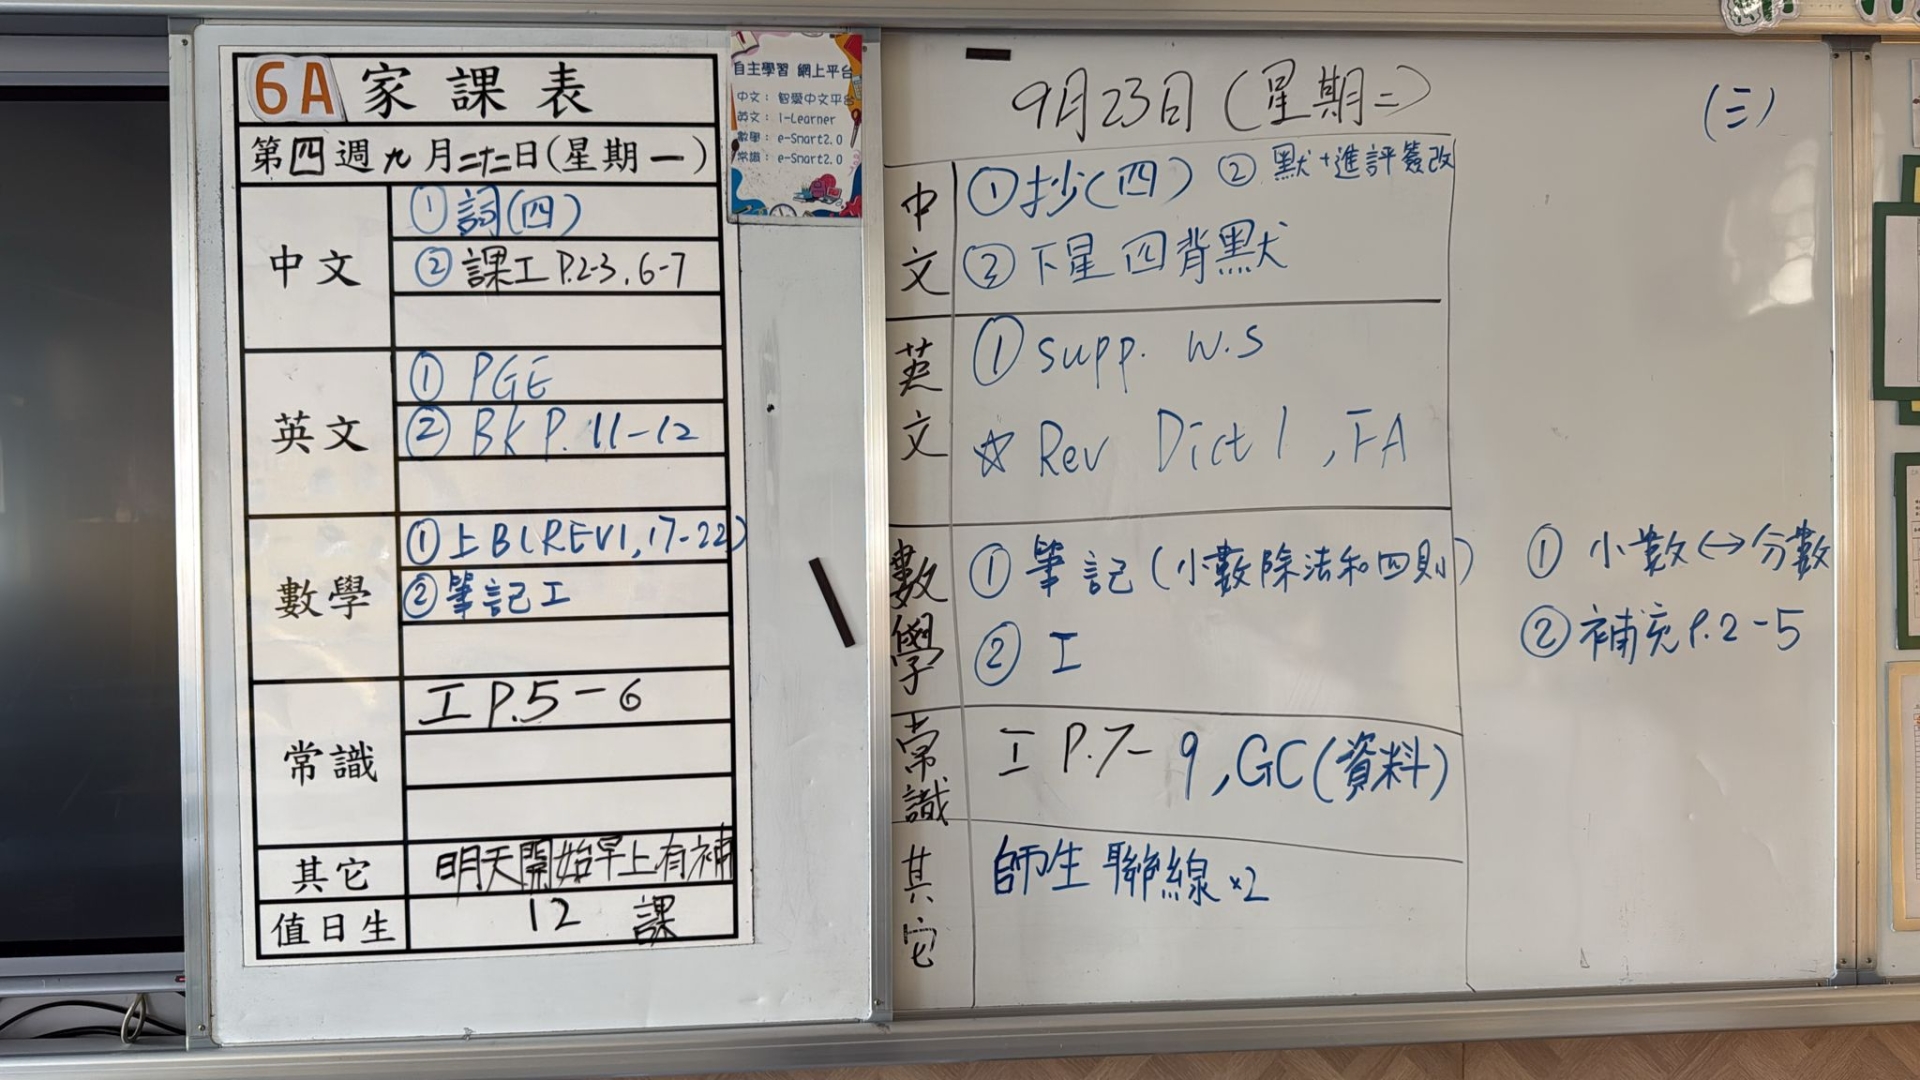 6A 家課表
第四週九月二十二日(星期一)
中文
①詞(四)
②課工P.2-3, 6-7
英文
① PGE
② BK P. 11-12
數學
①上B(REV1, 17-22)
②筆記工
常識
工 P.5-6
其它
明天開始早上有補
課
值日生
12
自主學習 網上平台
中文: 智愛中文平台
英文: i-Learner
數學: e-Smart2.0
常識: e-Smart2.0
9月23日(星期二)
中文
①抄(四) ②默+進評簽改
③下星四背默
英文
① Supp. W.S
☆ Rev Dict 1, FA
數學
①筆記(小數除法和四則)
②工
常識
工 P.7-9, GC(資料)
其它
師生聯線×2
(三)
① 小數↔分數
②補充P.2-5